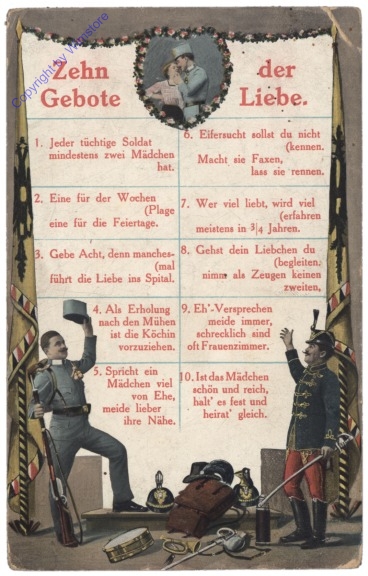 Copyright by Wigstore
Zehn Gebote der Liebe.
1. Jeder tüchtige Soldat
mindestens zwei Mädchen
hat.
2. Eine für der Wochen
(Plage
eine für die Feiertage.
3. Gebe Acht, denn manches-
(mal
führt die Liebe ins Spital.
4. Als Erholung
nach den Mühen
ist die Köchin
vorzuziehen.
5. Spricht ein
Mädchen viel
von Ehe,
meide lieber
ihre Nähe.
6. Eifersucht sollst du nicht
(kennen.
Macht sie Faxen,
lass sie rennen.
7. Wer viel liebt, wird viel
(erfahren
meistens in 3/4 Jahren.
8. Gehst dein Liebchen du
(begleiten.
nimm als Zeugen keinen
zweiten,
9. Eh'-Versprechen
meide immer,
schrecklich sind
oft Frauenzimmer.
10. Ist das Mädchen
schön und reich,
halt' es fest und
heirat' gleich.